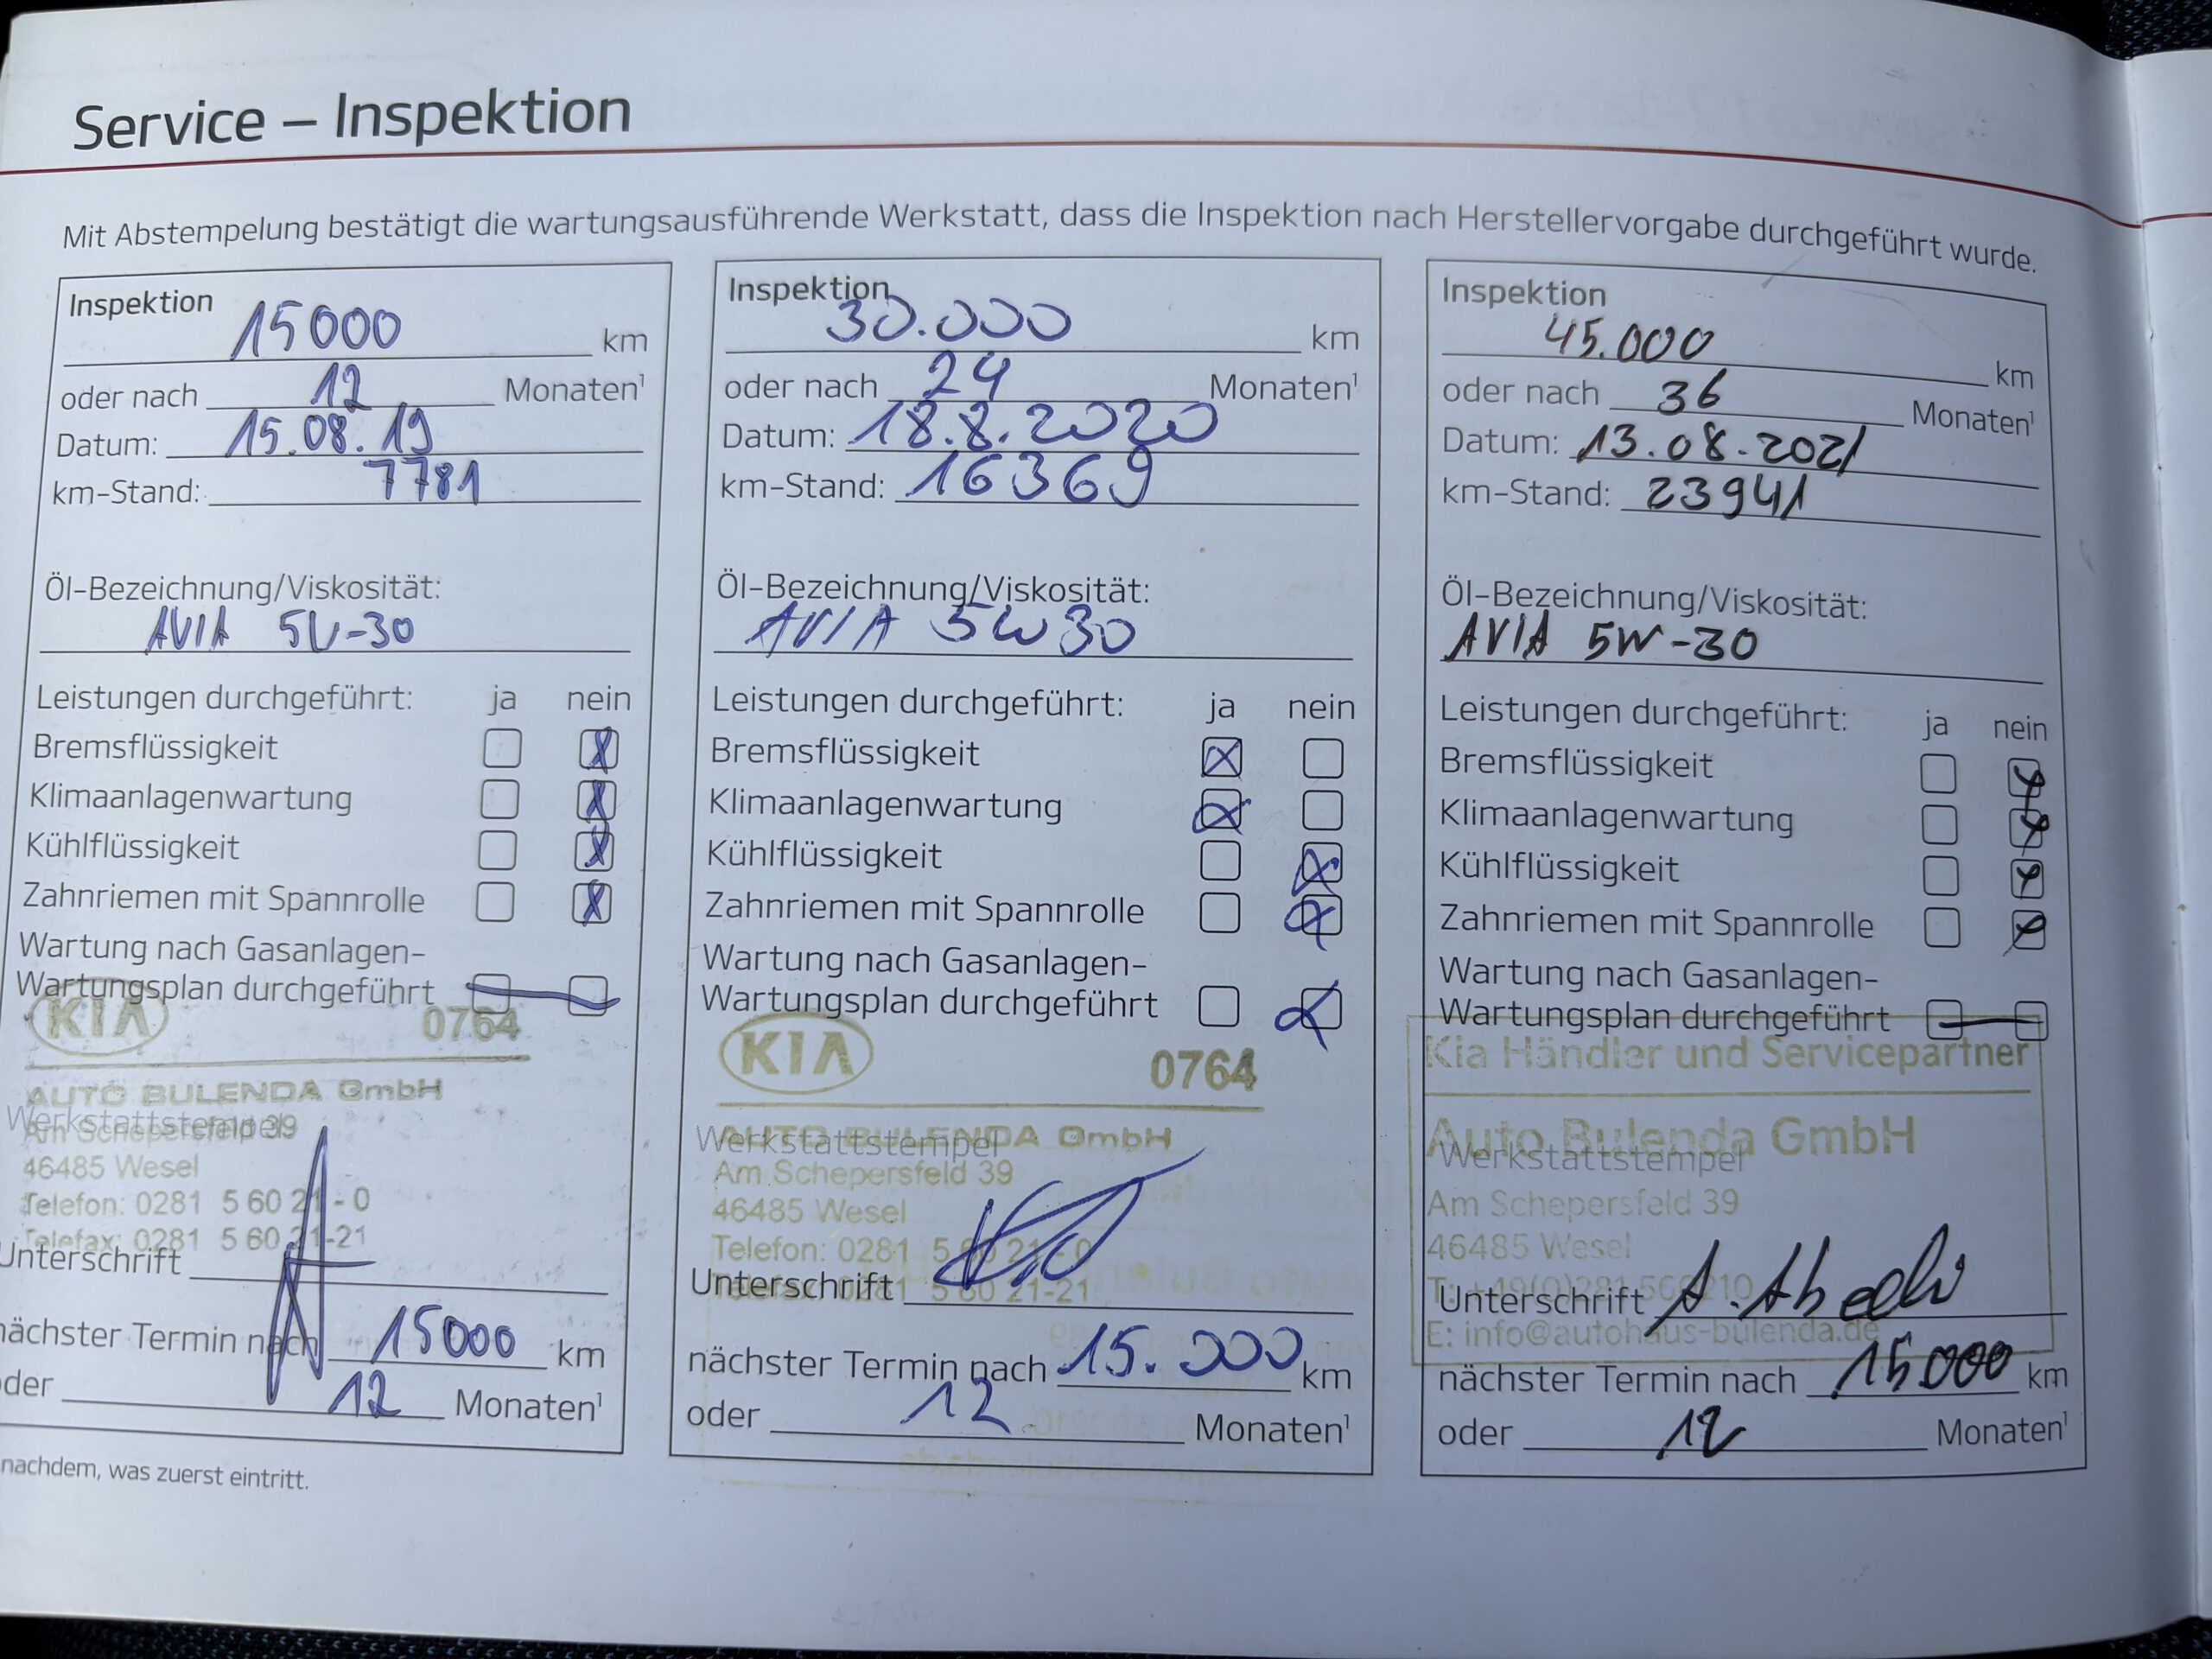 Service – Inspektion
Mit Abstempelung bestätigt die wartungsausführende Werkstatt, dass die Inspektion nach Herstellervorgabe durchgeführt wurde.
Inspektion
15000 km
oder nach 12 Monaten¹
Datum: 15.08.19
km-Stand: 7781
Öl-Bezeichnung/Viskosität:
AVIA 5W-30
Leistungen durchgeführt: ja nein
Bremsflüssigkeit
Klimaanlagenwartung
Kühlflüssigkeit
Zahnriemen mit Spannrolle
Wartung nach Gasanlagen-
Wartungsplan durchgeführt
KIA 0764
AUTO BULENDA GmbH
Werkstattstempel
Am Schepersfeld 39
46485 Wesel
Telefon: 0281 5 60 21 - 0
Telefax: 0281 5 60 21-21
Unterschrift
nächster Termin nach 15000 km
oder 12 Monaten¹
nachdem, was zuerst eintritt.
Inspektion
30.000 km
oder nach 24 Monaten¹
Datum: 18.8.2020
km-Stand: 16369
Öl-Bezeichnung/Viskosität:
AVIA 5W30
Leistungen durchgeführt: ja nein
Bremsflüssigkeit
Klimaanlagenwartung
Kühlflüssigkeit
Zahnriemen mit Spannrolle
Wartung nach Gasanlagen-
Wartungsplan durchgeführt
KIA 0764
AUTO BULENDA GmbH
Werkstattstempel
Am Schepersfeld 39
46485 Wesel
Telefon: 0281 5 60 21 - 0
Telefax: 0281 5 60 21-21
Unterschrift
nächster Termin nach 15.000 km
oder 12 Monaten¹
Inspektion
45.000 km
oder nach 36 Monaten¹
Datum: 13.08.2021
km-Stand: 23941
Öl-Bezeichnung/Viskosität:
AVIA 5W-30
Leistungen durchgeführt: ja nein
Bremsflüssigkeit
Klimaanlagenwartung
Kühlflüssigkeit
Zahnriemen mit Spannrolle
Wartung nach Gasanlagen-
Wartungsplan durchgeführt
Kia Händler und Servicepartner
Auto Bulenda GmbH
Werkstattstempel
Am Schepersfeld 39
46485 Wesel
T: +49(0)281 560210
Unterschrift
E: info@autohaus-bulenda.de
nächster Termin nach 15000 km
oder 12 Monaten¹